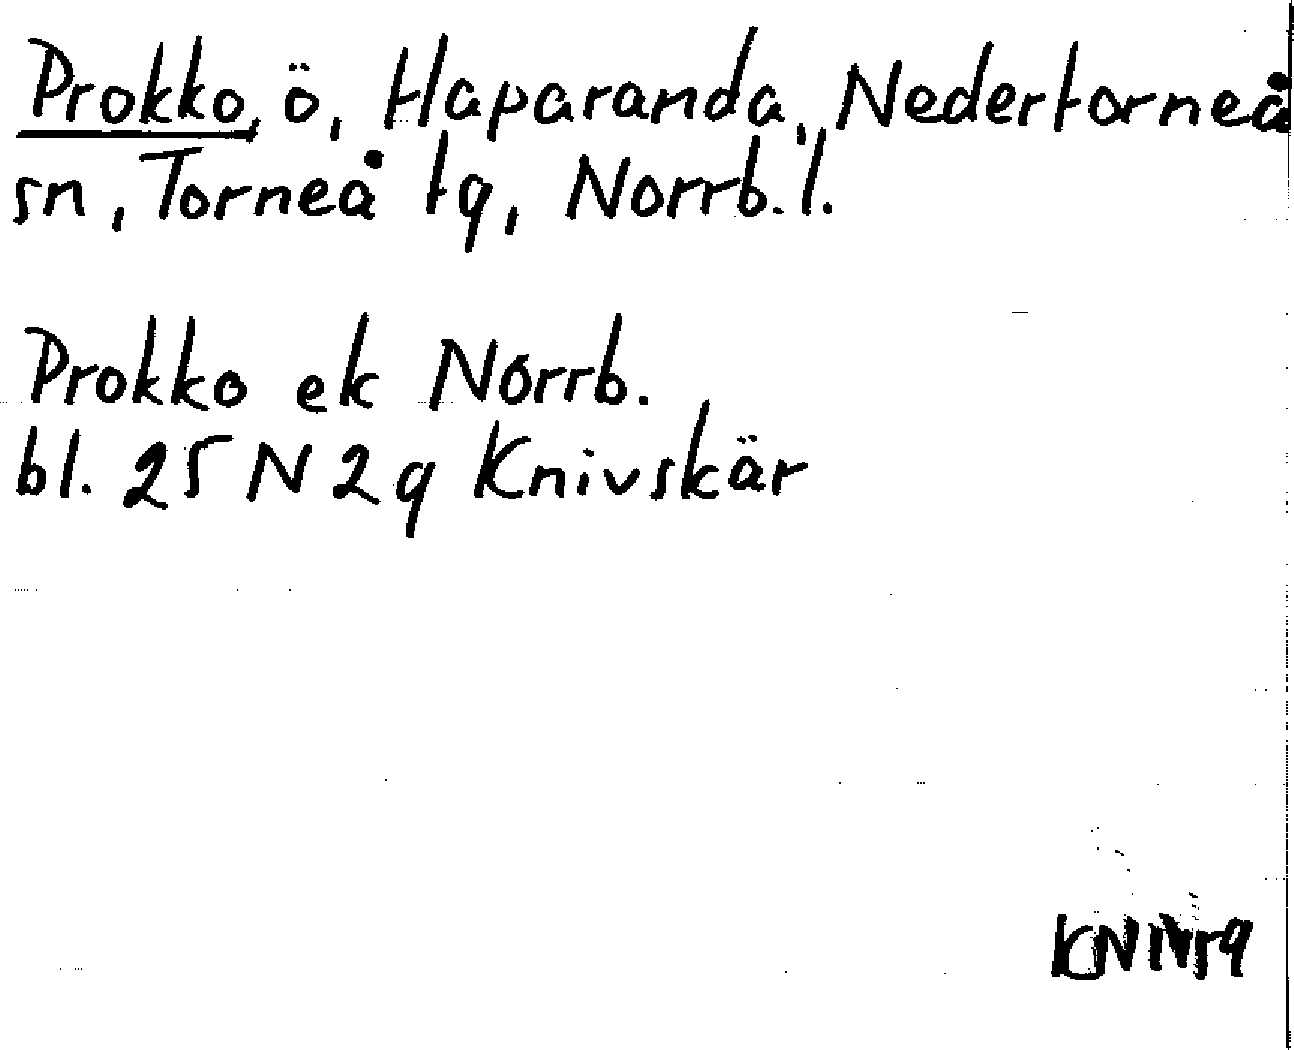 Prokko, ö, Haparanda, Nedertorneå
sn, Torneå tg, Norrb. l.
Prokko ek Norrb.
bl. 25 N 2g Knivskär